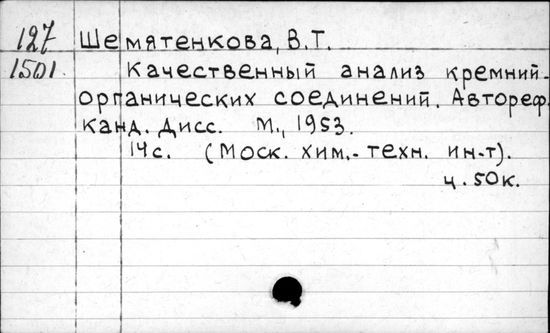 127 Шемятенкова, В.Т.
1501 Качественный анализ кремний-
органических соединений. Автореф.
канд. дисс. М., 1953.
14с. (Моск. хим.-техн. ин-т).
ц. 50к.